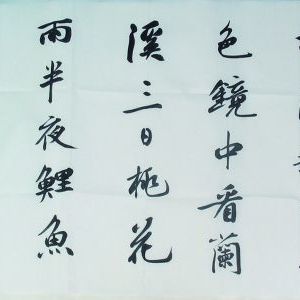 色鏡中看蘭
溪三日桃花
雨半夜鯉魚